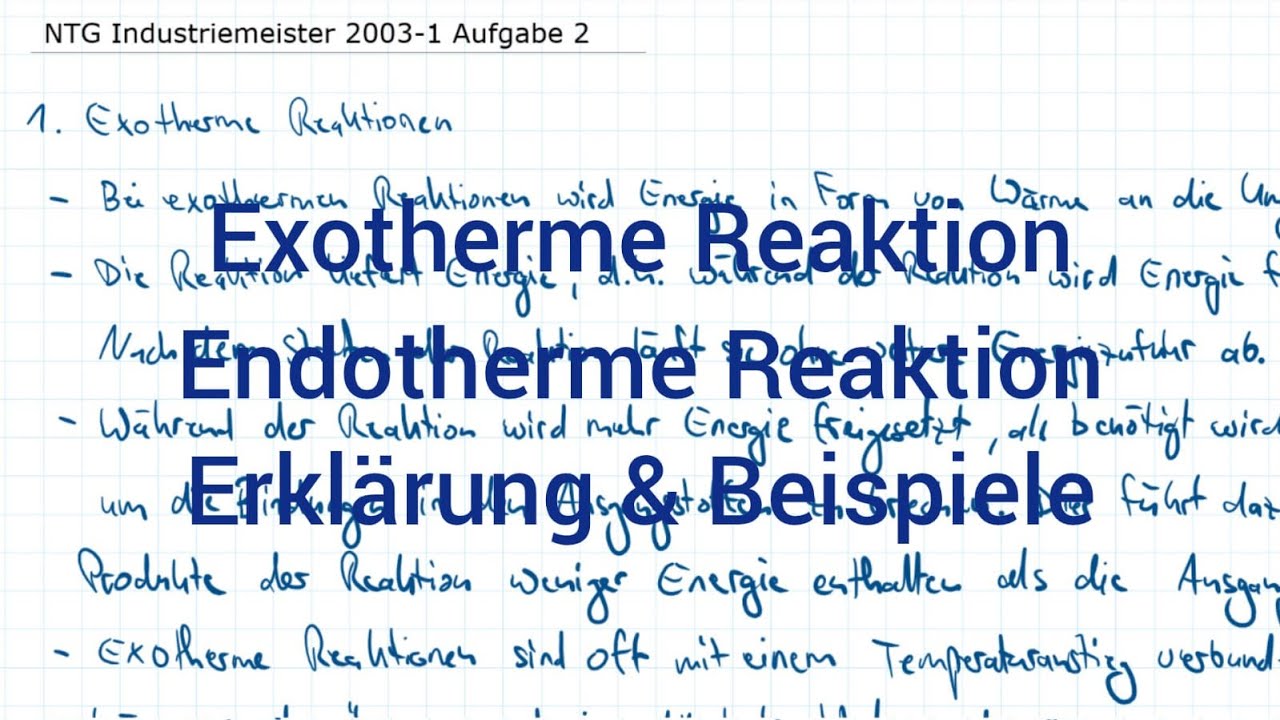 NTG Industriemeister 2003-1 Aufgabe 2
1. Exotherme Reaktionen
- Bei exothermen Reaktionen wird Energie in Form von Wärme an die
Exotherme Reaktion
- Die Reaktion liefert Energie, d.h. während der Reaktion wird Energie
Nach dem Starten der Reaktion läuft sie ohne weitere Energiezufuhr ab.
Endotherme Reaktion
- Während der Reaktion wird mehr Energie freigesetzt, als benötigt wird
Erklärung & Beispiele
um die Bindungen in den Ausgangsstoffen zu brechen. Dies führt
Produkte der Reaktion weniger Energie enthalten als die
- Exotherme Reaktionen sind oft mit einem Temperaturanstieg